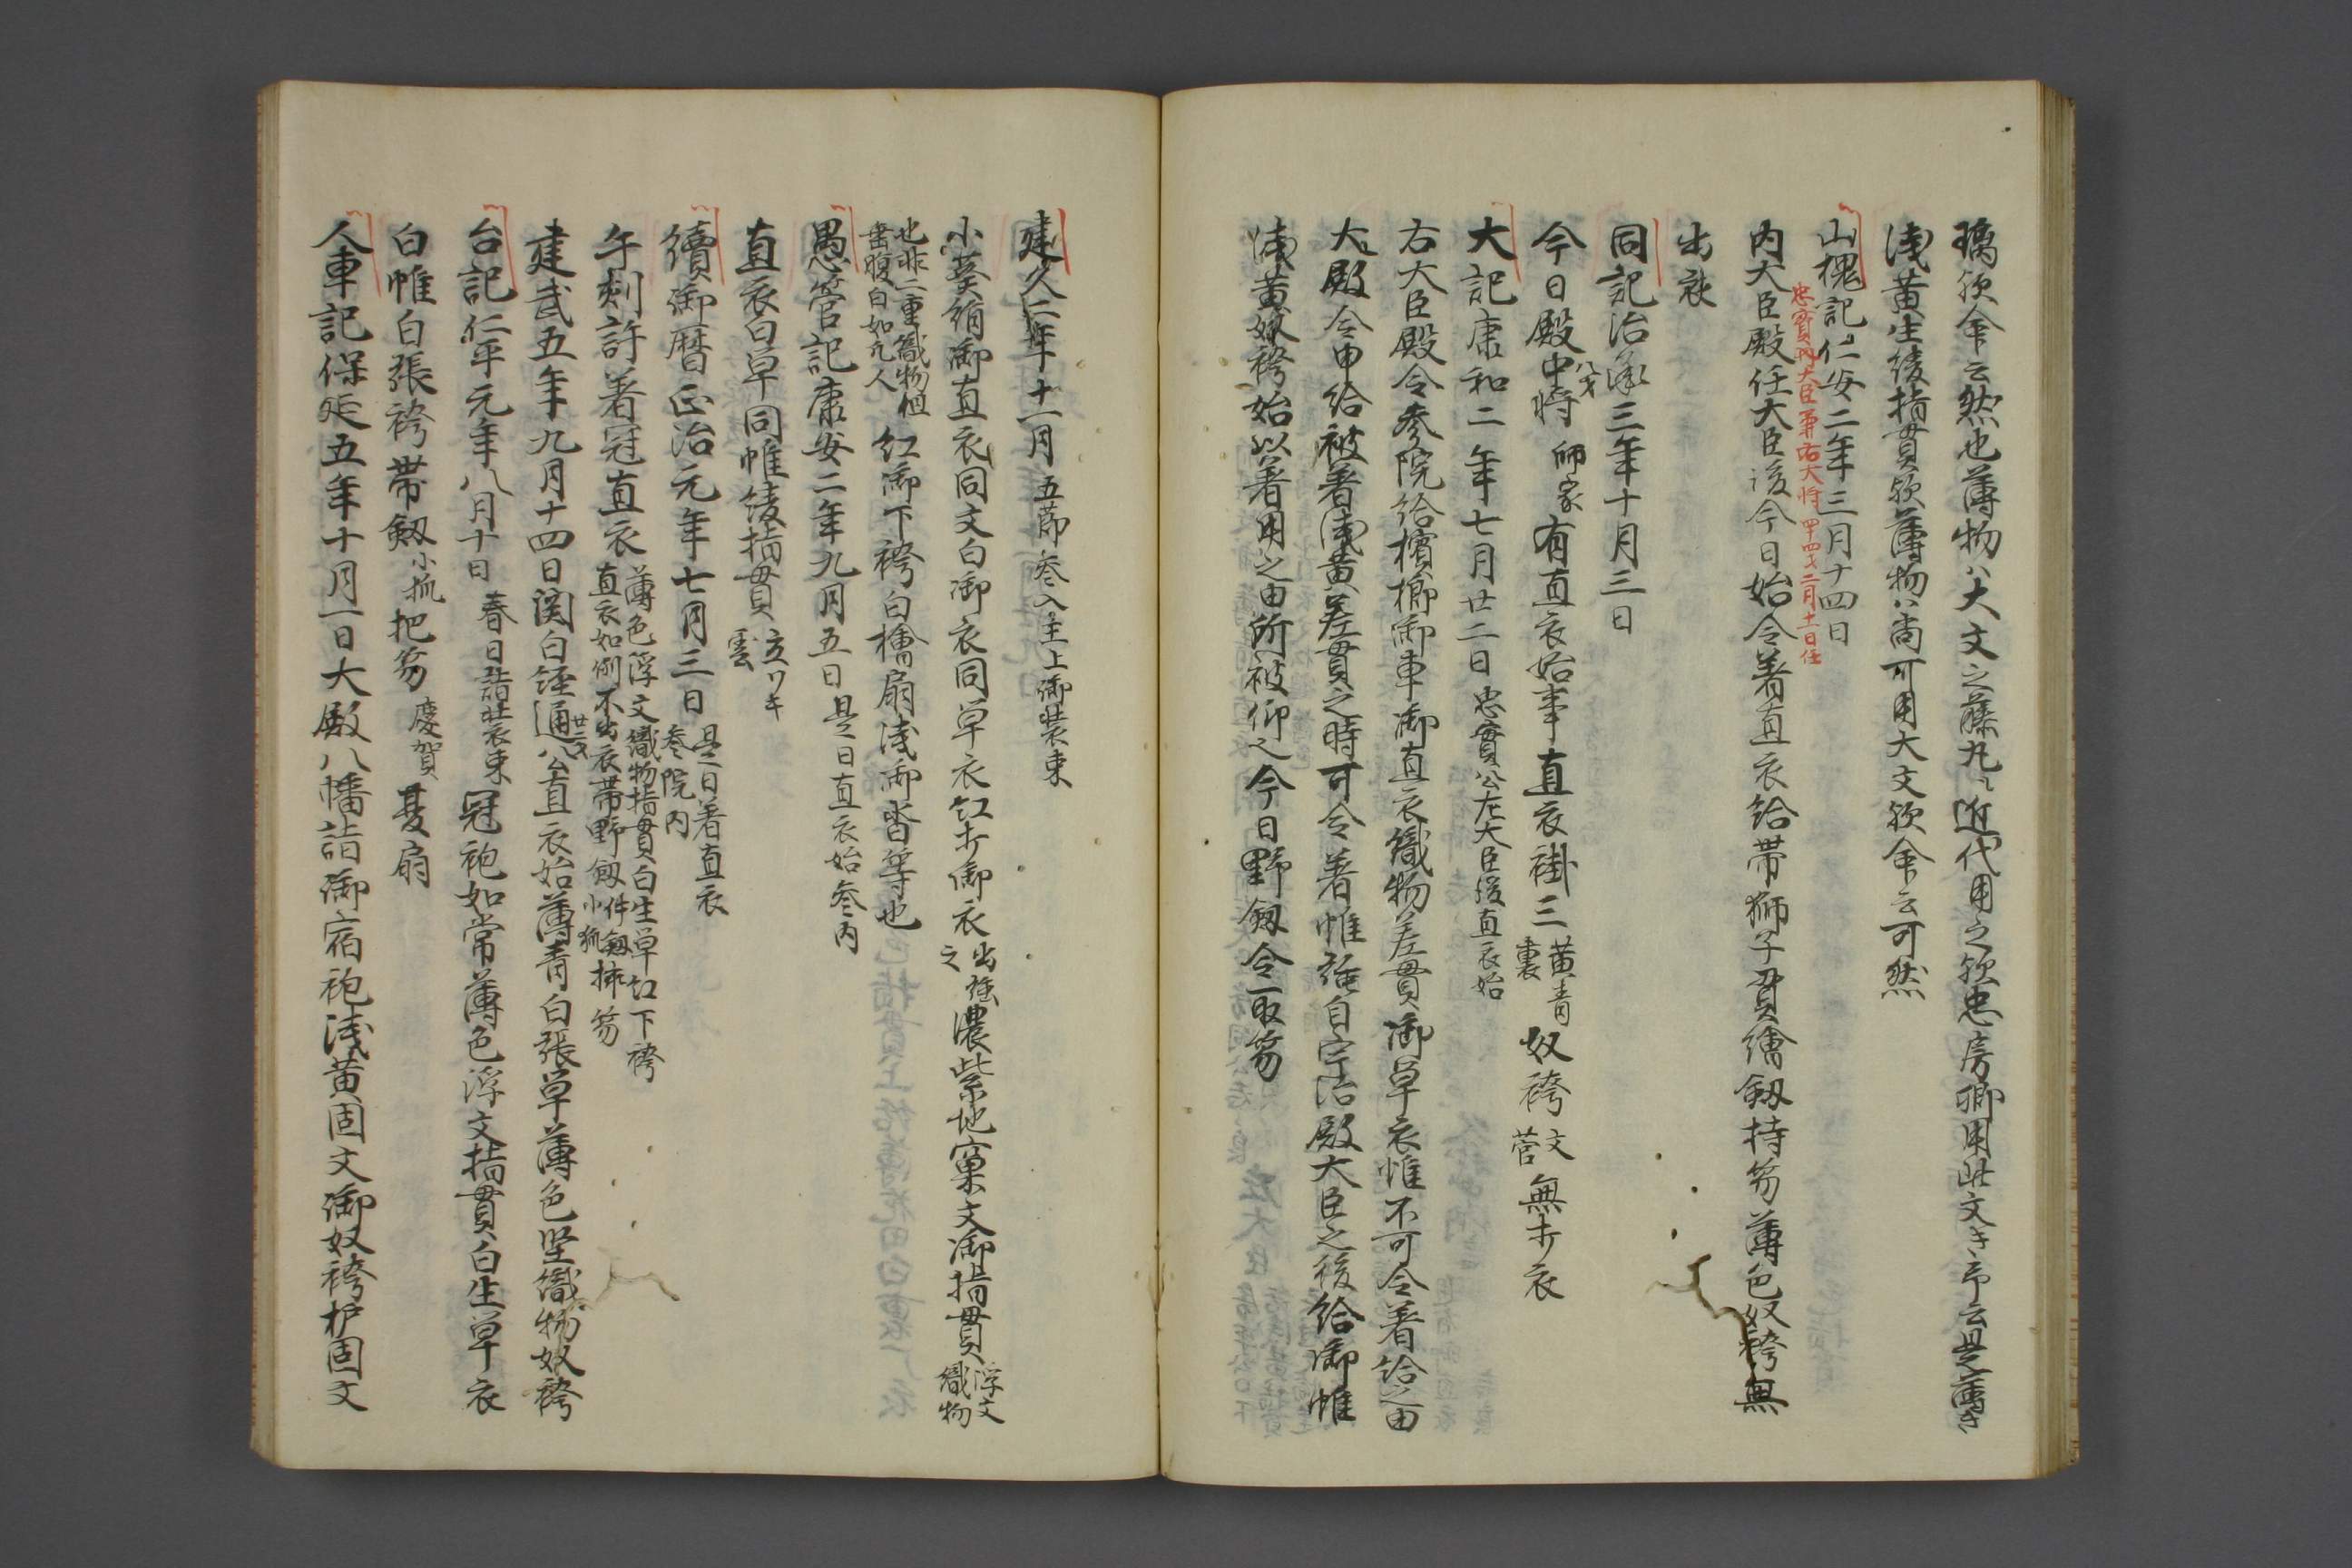 璃欤余云然也薄物ハ大文之藤丸ヽ近代用之欤忠房卿用此文き予云是薄き
浅黄生綾指貫欤薄物ハ尚可用大文欤余云可然
山槐記仁安二年三月十四日
忠實内大臣兼右大将四十四才二月十一日任
内大臣殿任大臣後今日始令着直衣給帯狮子貝繪釼持笏薄色奴袴無
出衣
同記治承三年十月三日
今日殿中将八才師家有直衣始事直衣褂三黄青裏奴袴文菅無打衣
大記康和二年七月廿二日忠實公左大臣後直衣始
右大臣殿令参院給檳榔御車御直衣織物差貫御單衣帷不可令着給之由
大殿令申給被着浅黄差貫之時可令着帷該自宇治殿大臣之後給御帷
浅黄奴袴始以着用之由所被仰之今日野釼令取笏
建久二年十一月五節参入主上御装束
小葵絹御直衣同文白御衣同單衣紅打御衣出強之濃紫地窠文御指貫浮文織物
也非二重織物但裏腹白如凡人紅御下袴白檜扇浅御沓等也
愚管記康安二年九月五日是日直衣始参内
直衣白單同帷綾指貫立ワキ雲
續御暦正治元年七月三日是日着直衣参院内
午剋許着冠直衣薄色浮文織物指貫白生單紅下袴直衣如例不出衣帯野釼件釼小狐持笏
建武五年九月十四日関白経通公廿二才直衣始薄青白張單薄色堅織物奴袴
台記仁平元年八月十日春日詣装束冠袍如常薄色浮文指貫白生單衣
白帷白張袴帯釼小狐把笏慶賀夏扇
人車記保延五年十月一日大殿八幡詣御宿袍浅黄固文御奴袴护固文